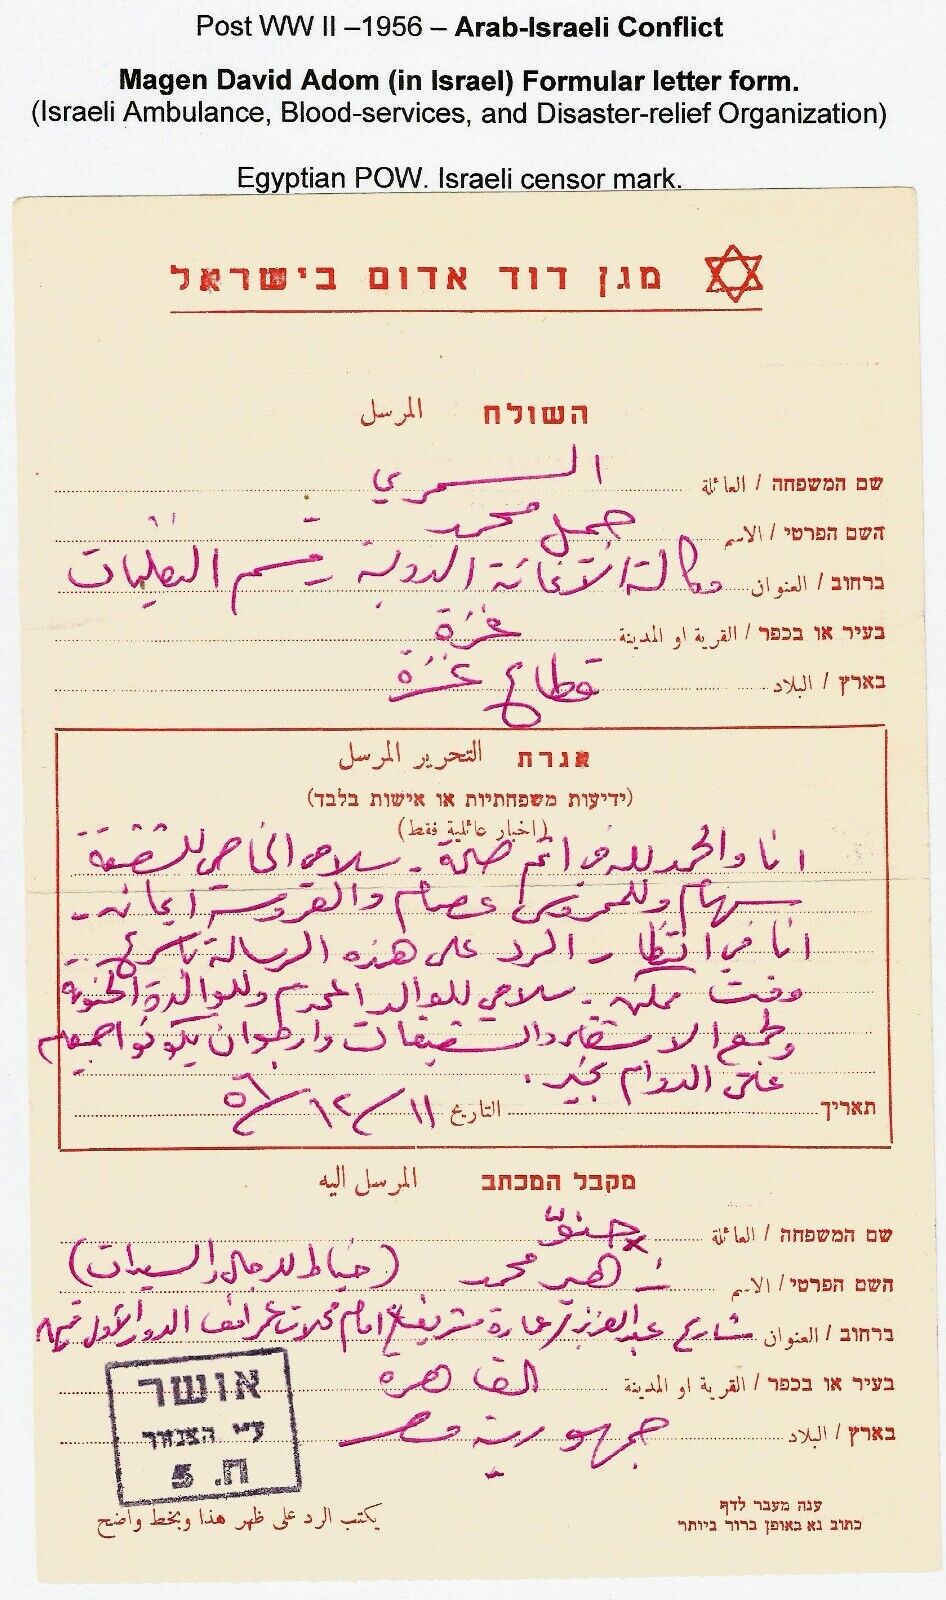 Post WW II –1956 – Arab-Israeli Conflict
Magen David Adom (in Israel) Formular letter form.
(Israeli Ambulance, Blood-services, and Disaster-relief Organization)
Egyptian POW. Israeli censor mark.
מגן דוד אדום בישראל
השולח المرسل
שם המשפחה / العائلة السمري
השם הפרטי / الاسم محمد
ברחוב / العنوان وكالة الدولية قسم
בעיר או בכפר / القرية او المدينة غزة
בארץ / البلاد قطاع غزة
אגרת التحرير المرسل
(ידיעות משפחתיות או אישות בלבד)
(اخبار عائلية فقط)
انا والحمد لله في اتم صحة - سلامي الخاص للشقيقة
سهام وللمحروس عصام والعروسة
انا في انتظار الرد على هذه الرسالة باسرع
وقت ممكن - سلامي للوالد المحترم وللوالدة الحنونة
ولجميع الاشقاء والشقيقات وارجو ان يكونوا جميعهم
على الدوام بخير .
תאריך التاريخ ١١/١٢/٥٦
מקבל המכתב المرسل اليه
שם המשפחה / العائلة
השם הפרטי / الاسم زهير محمد (خياط للرجال والسيدات)
ברחוב / العنوان شارع عبد العزيز عمارة امام محلات الدور الأول
בעיר או בכפר / القرية او المدينة القاهرة
בארץ / البلاد جمهورية مصر
אושר
ע"י הצנזור
ח. 5
ענה מעבר לדף
כתוב נא באופן ברור ביותר
يكتب الرد على ظهر هذا وبخط واضح